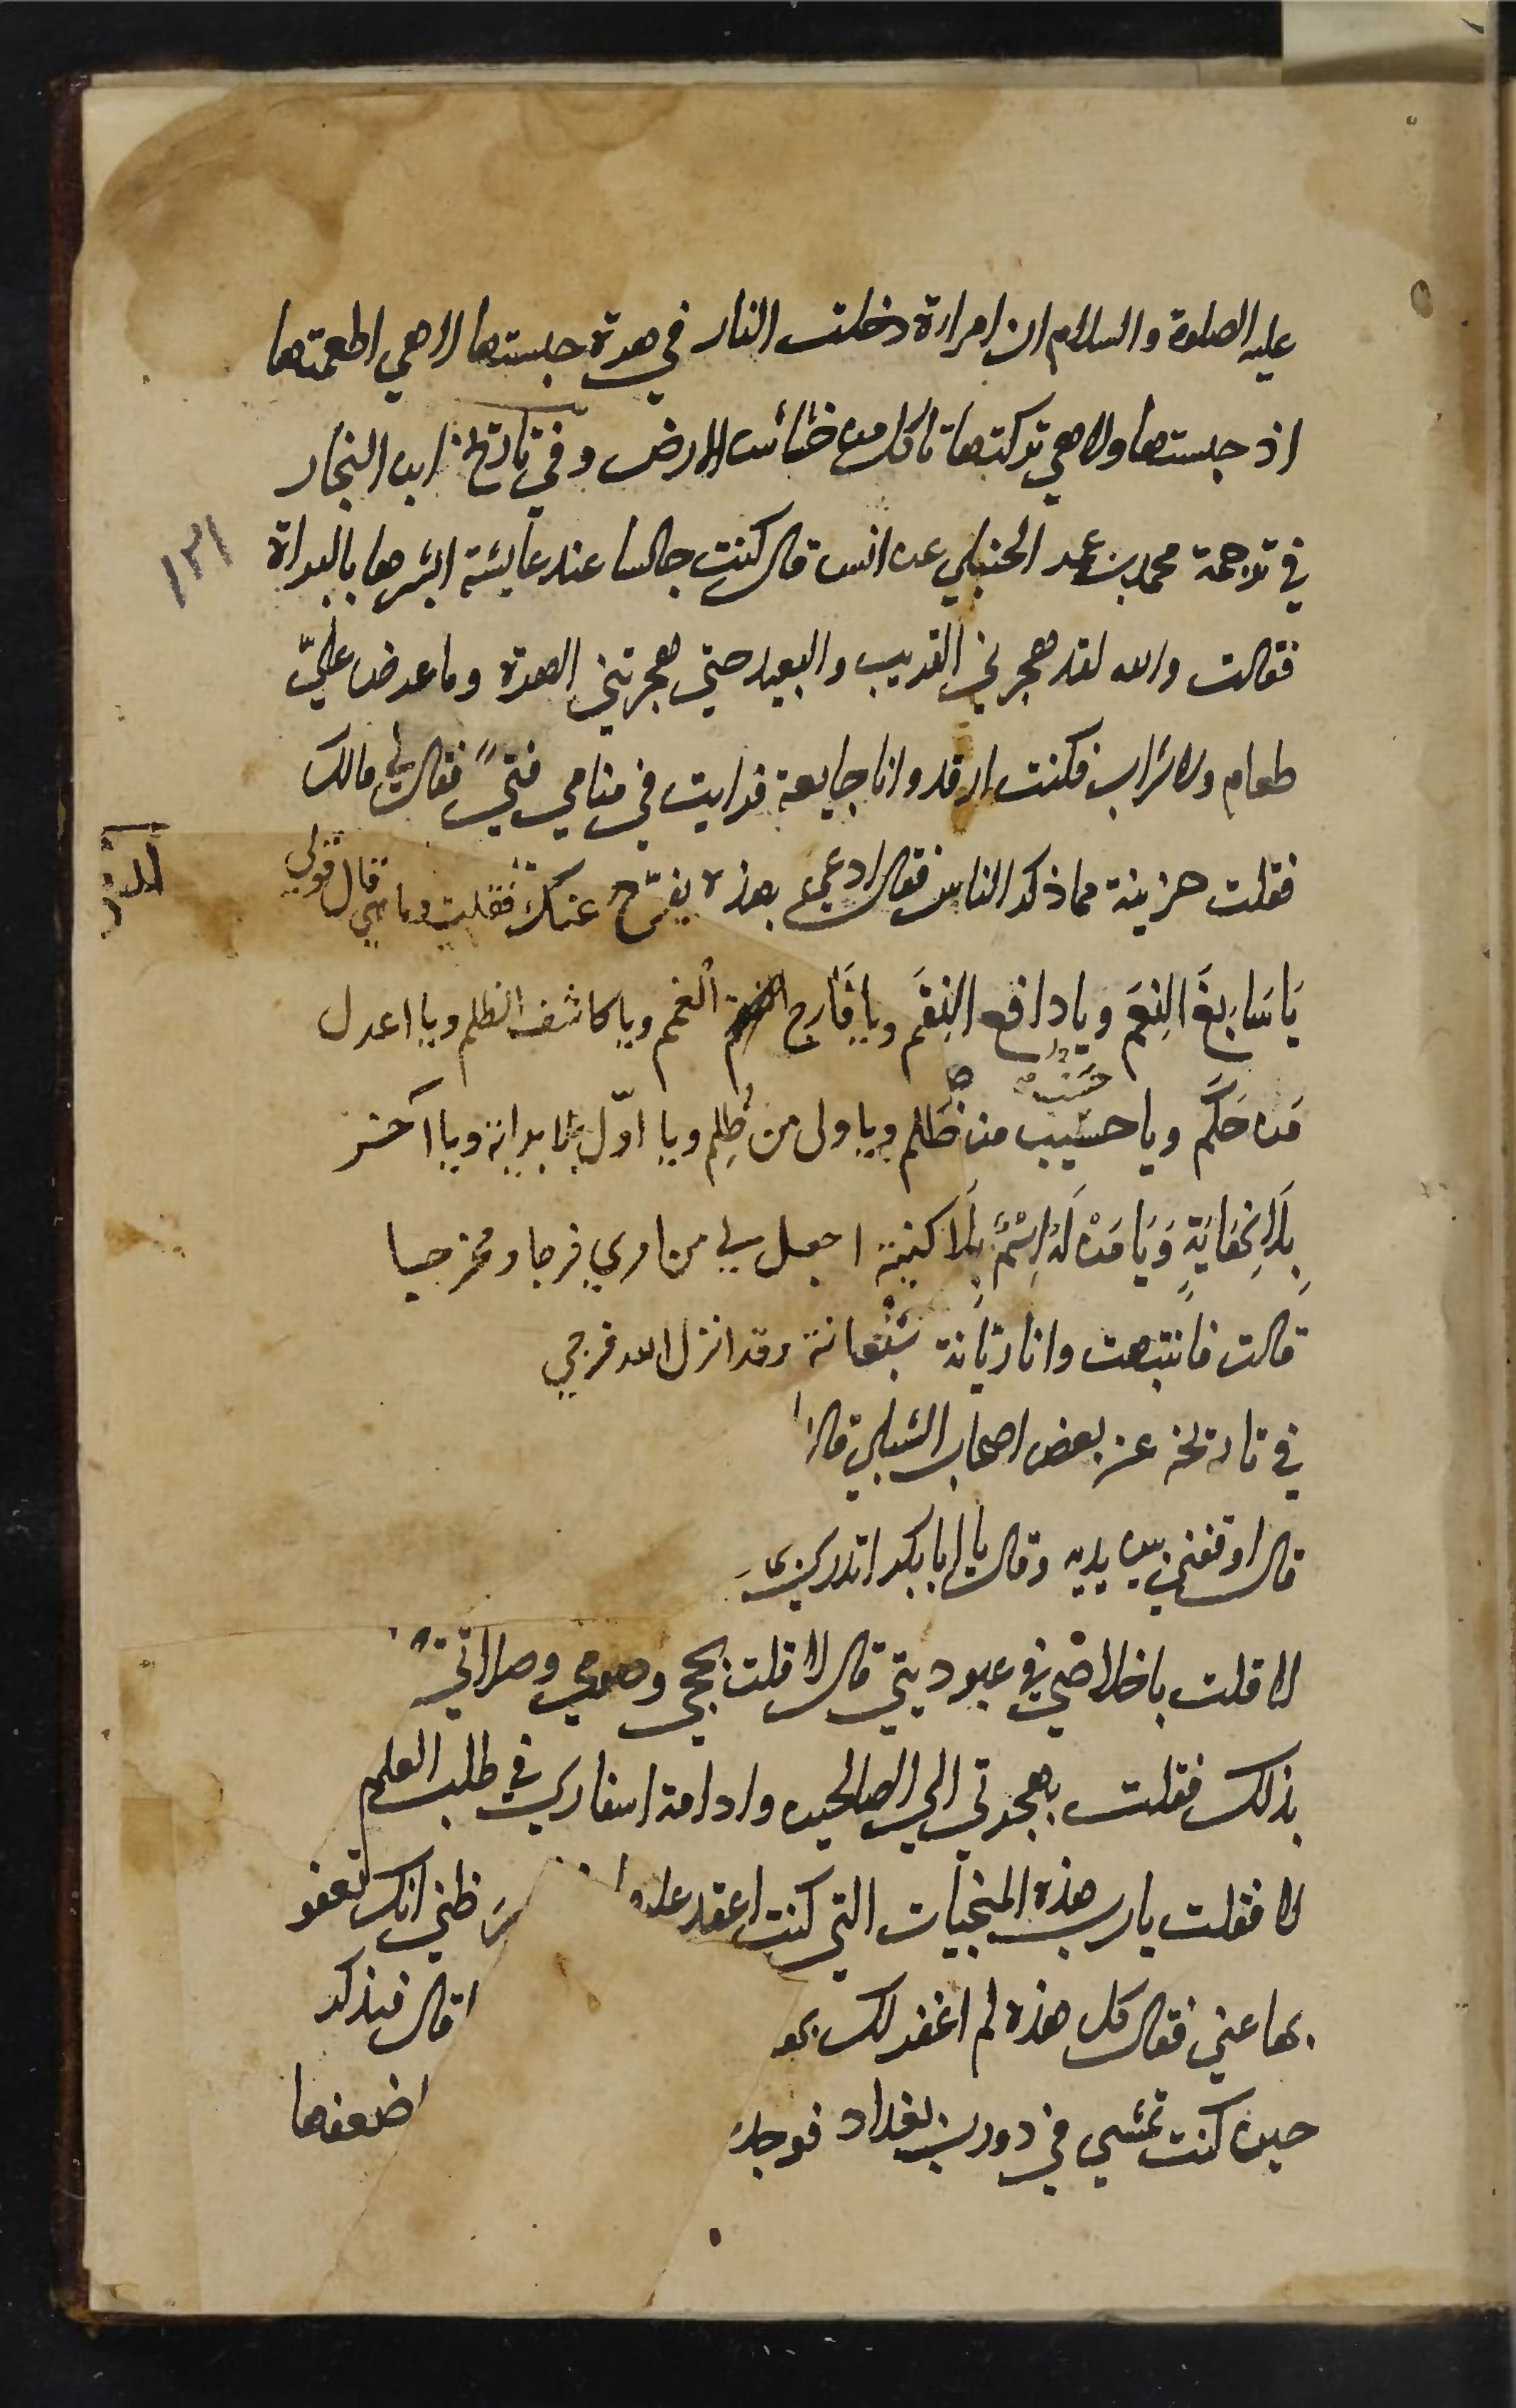 عليه الصلوة والسلام ان امراءة دخلت النار في هرة حبستها لا هي اطعمتها
اذ حبستها ولا هي تركتها تاكل من خشاش الارض وفي تاريخ ابن النجار
١٣١
في ترجمة محمد بن عمر الحنبلي عن انس قال كنت جالسا عند عايشة ابشرها بالبراة
فقالت والله لقد هجرني القريب والبعيد حتى هجرتني الهرة وما عرض عليّ
طعام ولا شراب فكنت ارقد وانا جايعة فرايت في منامي فتىً فقال لي مالك
فقلت حزينة مما ذكر الناس فقال ادعي بهذه يفرّج عنك فقلت وما هي قال قولي
يَا سَابِغَ النِعَم ويا دافع النِقَم ويا فَارج الغمم ويا كاشف الظلم ويا اعدل
مَن حَكَم ويا حسيب من ظَلم ويا ولى من ظُلِم ويا اوّل بلا بداية ويا آخر
بِلَا نِهَايَةٍ وَيَا مَنْ لَهُ اِسْمٌ بِلَا كنية اجعل لي من امري فرجا ومخرجا
قالت فانتبهت وانا ريّانة شبعانة وقد انزل الله فرجي
في تاريخه عن بعض اصحاب الشبلي قال
قال اوقفني بين يديه وقال يا ابا بكر اتدري
لا قلت باخلاصي في عبوديتي قال لا قلت بحجي وصومي وصلاتي
بذلك فقلت بهجرتي الى الصالحين وادامة اسفاري في طلب العلم
لا فقلت يا رب هذه المنجيات التي كنت اعقد عليها ظني انك تعفو
بها عني فقال كل هذه لم اغفر لك بها قال فبذكر
حين كنت تمشي في دورب بغداد فوجد اضعفها